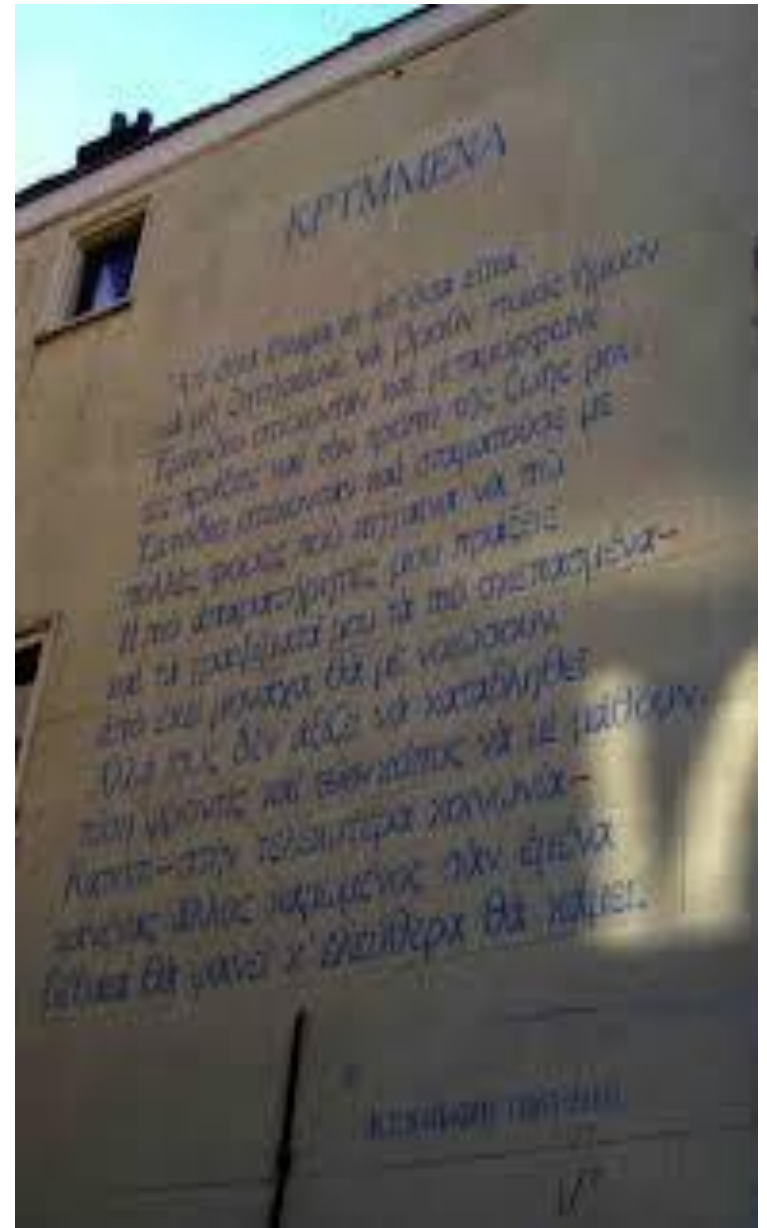 ΚΡΥΜΜΕΝΑ
Ἀπ' ὅσα ἔκαμα κι ἀπ' ὅσα εἶπα
νὰ μὴ ζητήσουνε νὰ βροῦν ποιὸς ἤμουν
Ἐμπόδιο στέκονταν καὶ μεταμόρφωνε
τὲς πράξεις καὶ τὸν τρόπο τῆς ζωῆς μου.
Ἐμπόδιο στέκονταν καὶ σταματοῦσε με
πολλὲς φορὲς ποὺ πήγαινα νὰ πῶ
Οἱ πιὸ ἀπαρατήρητές μου πράξεις
καὶ τὰ γραψίματά μου τὰ πιὸ σκεπασμένα–
ἀπὸ ἐκεῖ μονάχα θὰ μὲ νοιώσουν
δὲν ἀξίζει νὰ καταβληθεῖ
τόση φροντὶς καὶ κόπος νὰ μὲ μάθουν.
Κατόπι–στὴν τελειωτέρα κοινωνία–
κανένας ἄλλος καμωμένος σὰν ἐμένα
βέβαια θὰ φανεῖ κ' ἐλεύθερα θὰ κάμει.